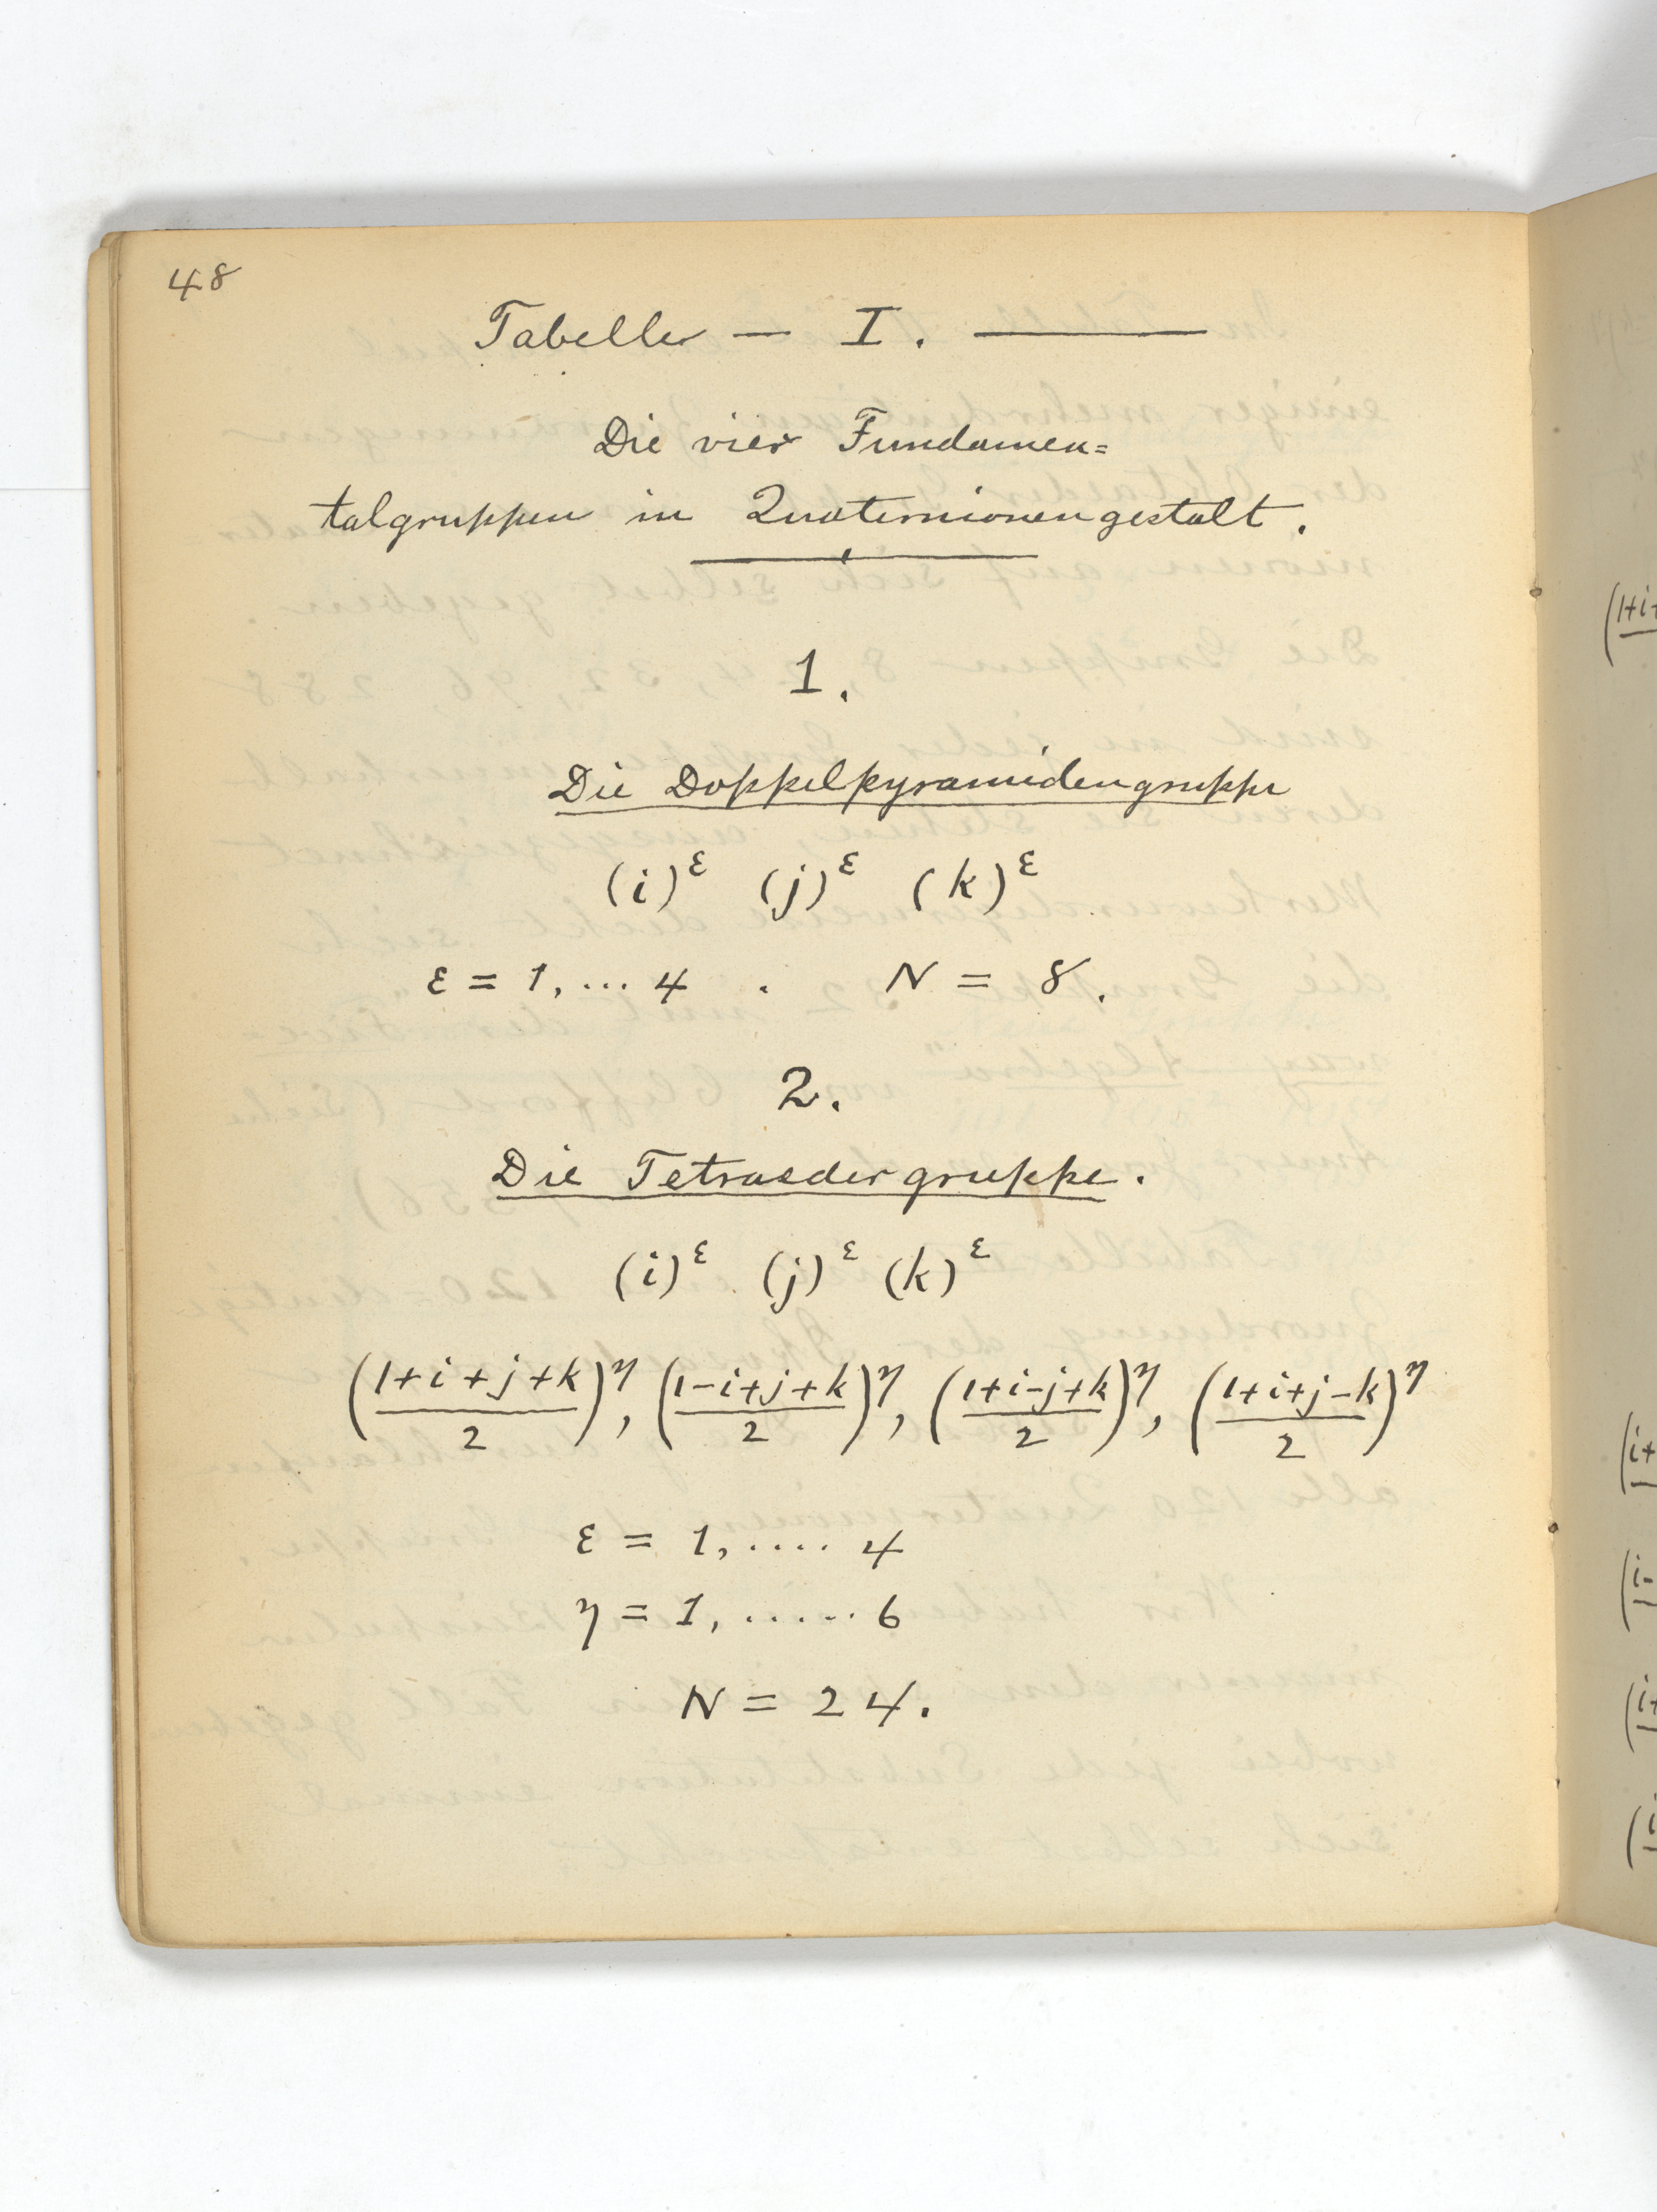 48
Tabelle — I. ———
Die vier Fundamen=
talgruppen in Quaternionengestalt.
1.
Die Doppelpyramidengruppe
(i)^ε (j)^ε (k)^ε
ε = 1,... 4 . N = 8.
2.
Die Tetraedergruppe.
(i)^ε (j)^ε (k)^ε
((1+i+j+k)/2)^η, ((1-i+j+k)/2)^η, ((1+i-j+k)/2)^η, ((1+i+j-k)/2)^η
ε = 1,.... 4
η = 1,...... 6
N = 24.